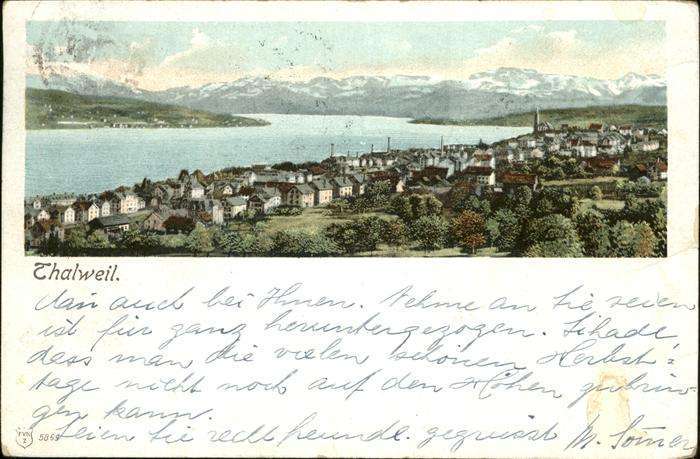 Thalweil.
dann auch bei Ihnen. Nehme an Sie seien
ist für ganz heruntergezogen. Schade
dass man die vielen schönen Herbst=
tage nicht noch auf den Höhen zubrin
gen kann.
Seien Sie recht freundl. gegrüsst M.
5869